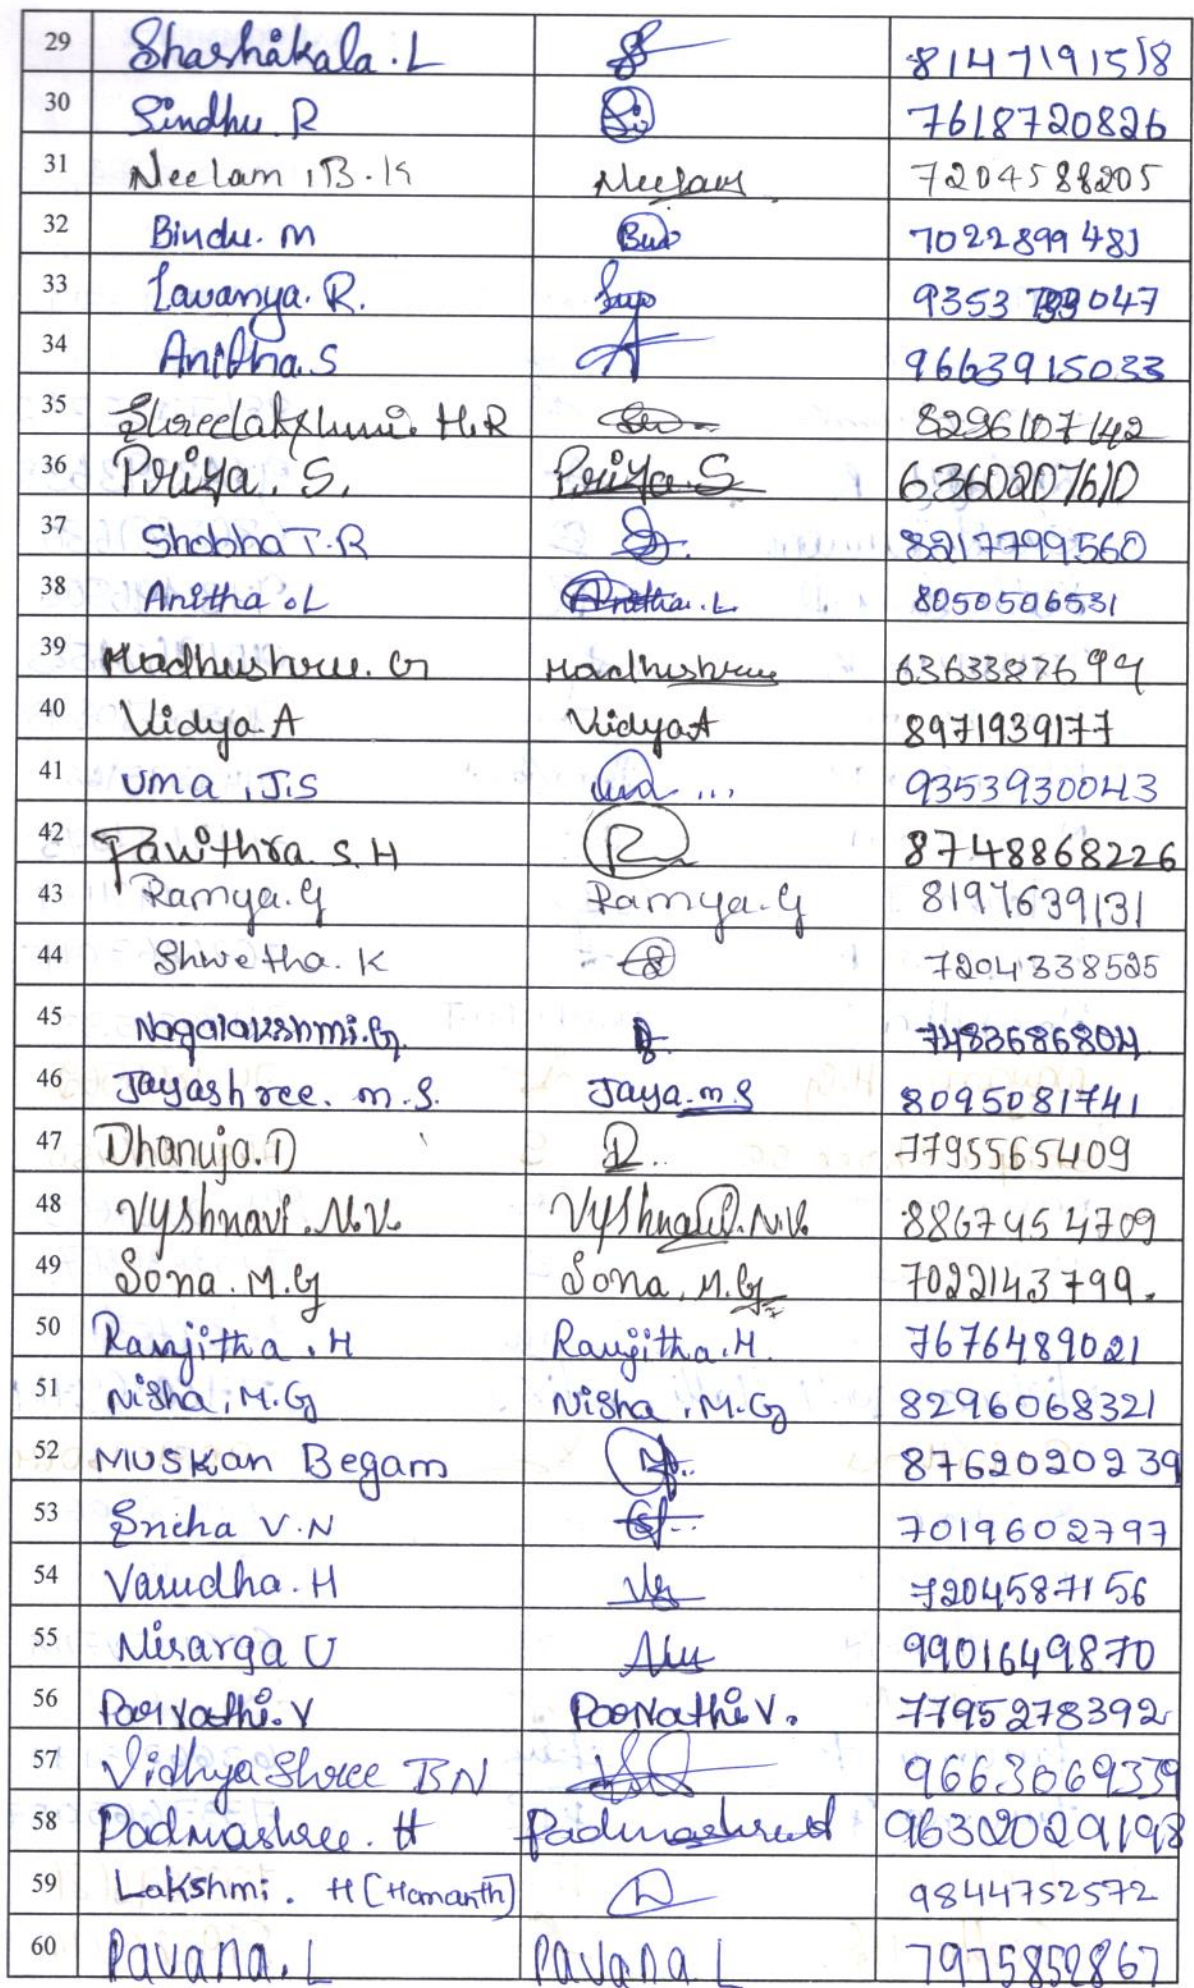 29 Shashikala.L 8147191518
30 Sindhu R 7618720826
31 Neelam .B.K Neelam 7204588205
32 Bindu. M Bin 7022899481
33 Lavanya. R. 9353 047
34 Anitha.S 9663915033
35 Shreelakshmi H.R 8296107142
36 Priya. S. Priya.S 6360207610
37 Shobha T.R 8217799560
38 Anitha .L Anitha.L 8050506531
39 Madhushree. G Madhushree 6363387694
40 Vidya.A VidyaA 8971939177
41 Uma .J.S Uma ... 9353930043
42 Pavithra. S.H 8748868226
43 Ramya.G Ramya.G 8197639131
44 Shwetha. K 7204338525
45 Nagalakshmi.G. 7483686804
46 Jayashree. m.S. Jaya.m.S 8095081741
47 Dhanuja.D D.. 7795565409
48 Vyshnavi .N.V. Vyshnavi.N.V. 8867454709
49 Sona. M.G Sona. M.G 7022143799.
50 Ranjitha .H Ranjitha.H. 7676489021
51 Nisha. M.G Nisha .M.G 8296068321
52 Muskan Begam 8762020239
53 Sneha V.N 7019602797
54 Varudha.H 7204587156
55 Nisarga U 9901649870
56 Parvathi.V Poorvathi V. 7795278392
57 Vidhya Shree B N 9663069339
58 Padmashree. H PadmashreeH 9632029198
59 Lakshmi. H (Hemanth) 9844752572
60 Pavana. L Pavana L 7975852867